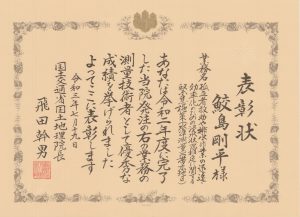 表彰状
鮫島剛平様
業務名
あなたは令和二年度に完了
した当院発注の右の業務の
測量技術者として優秀な
成績を挙げられました
よってここに表彰します
令和三年七月十九日
国土交通省国土地理院長
飛田幹男